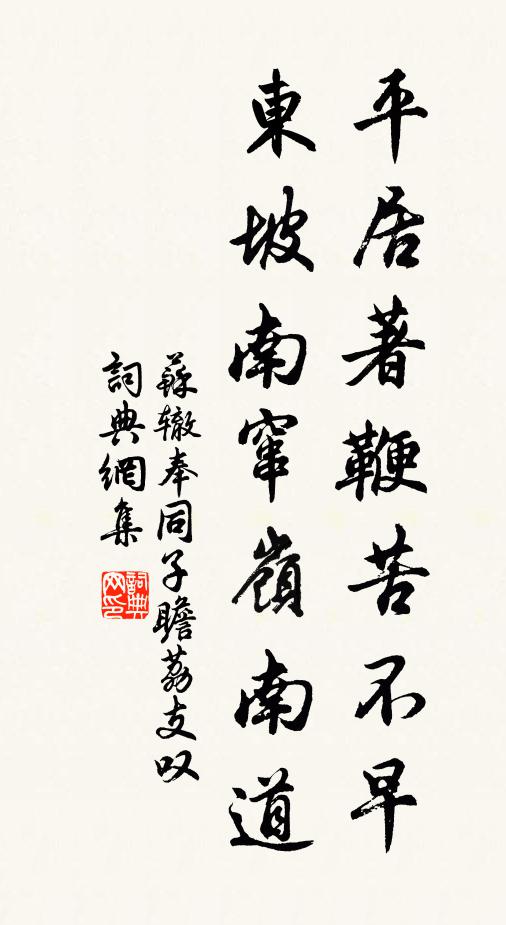 平居著鞭苦不早
東坡南竄嶺南道
蘇辙奉同子瞻荔支叹
詞典網集
詞典网印